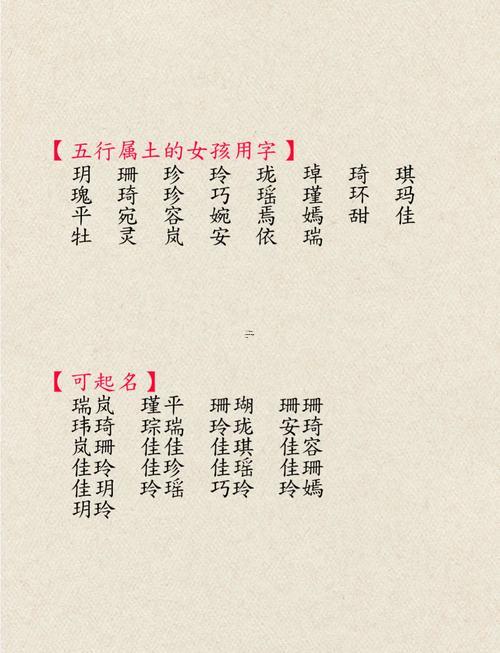 【五行属土的女孩用字】
玥 珊 珍 玲 珑 琸 琦 琪
瑰 琦 珍 巧 瑶 瑾 环 玛
平 宛 容 婉 焉 嫣 甜 佳
牡 灵 岚 安 依 瑞
【可起名】
瑞岚 瑾平 珊瑚 珊珊
玮琦 琮瑞 玲珑 安琦
岚珊 佳佳 佳琪 佳容
佳玲 佳珍 佳瑶 佳珊
佳玥 玲瑶 巧玲 玲嫣
玥玲